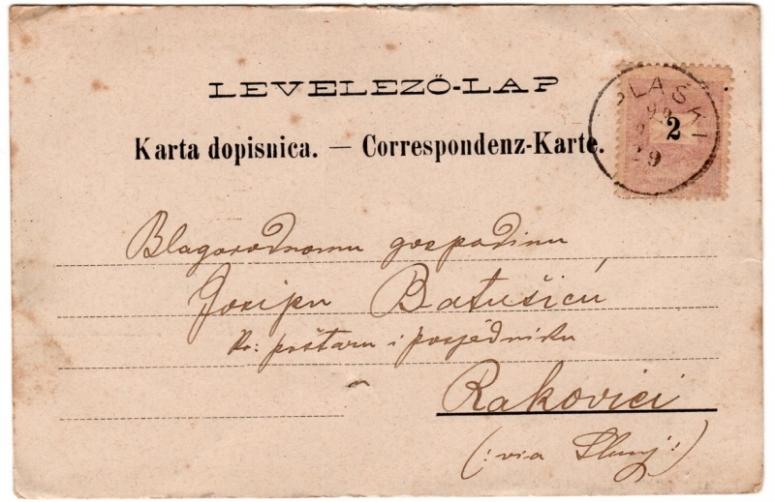 LEVELEZŐ-LAP
Karta dopisnica. — Correspondenz-Karte.
PLAŠKI
99
29
2
Blagorodnomu gospodinu
Josipu Batušiću
kr: poštaru i posjedniku
Rakovici
(: via Slunj :)